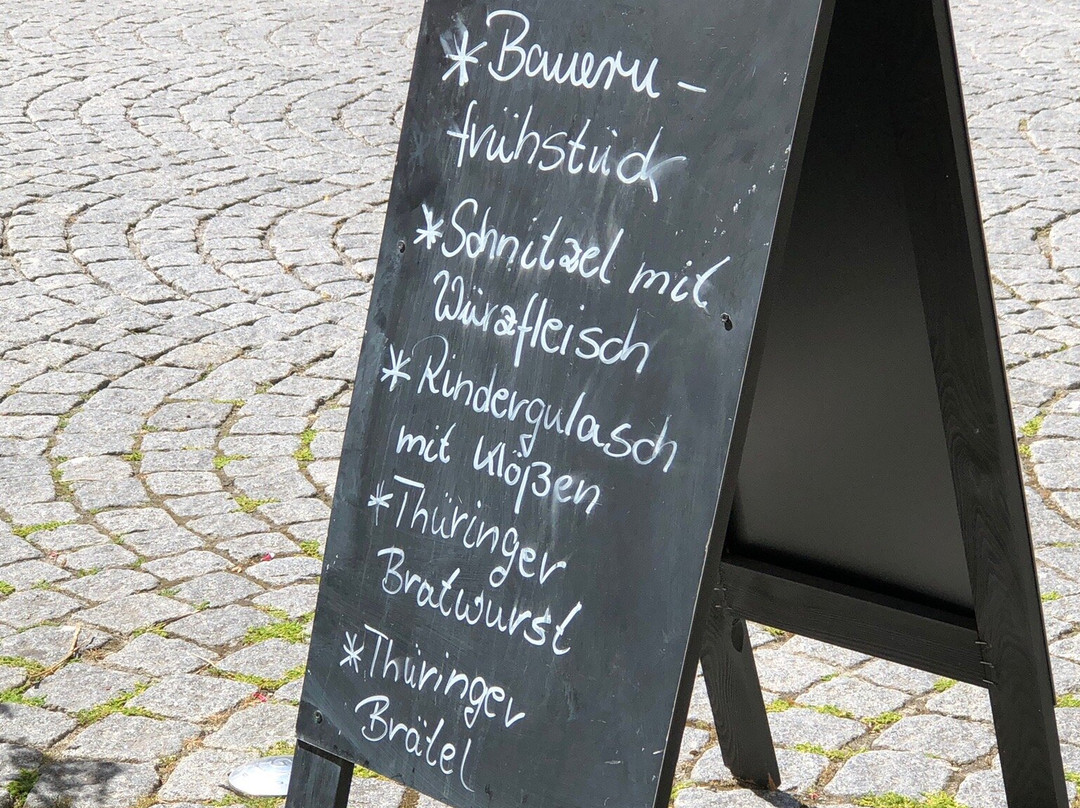 * Bauern-
frühstück
* Schnitzel mit
Würzfleisch
* Rindergulasch
mit Klößen
* Thüringer
Bratwurst
* Thüringer
Brätel